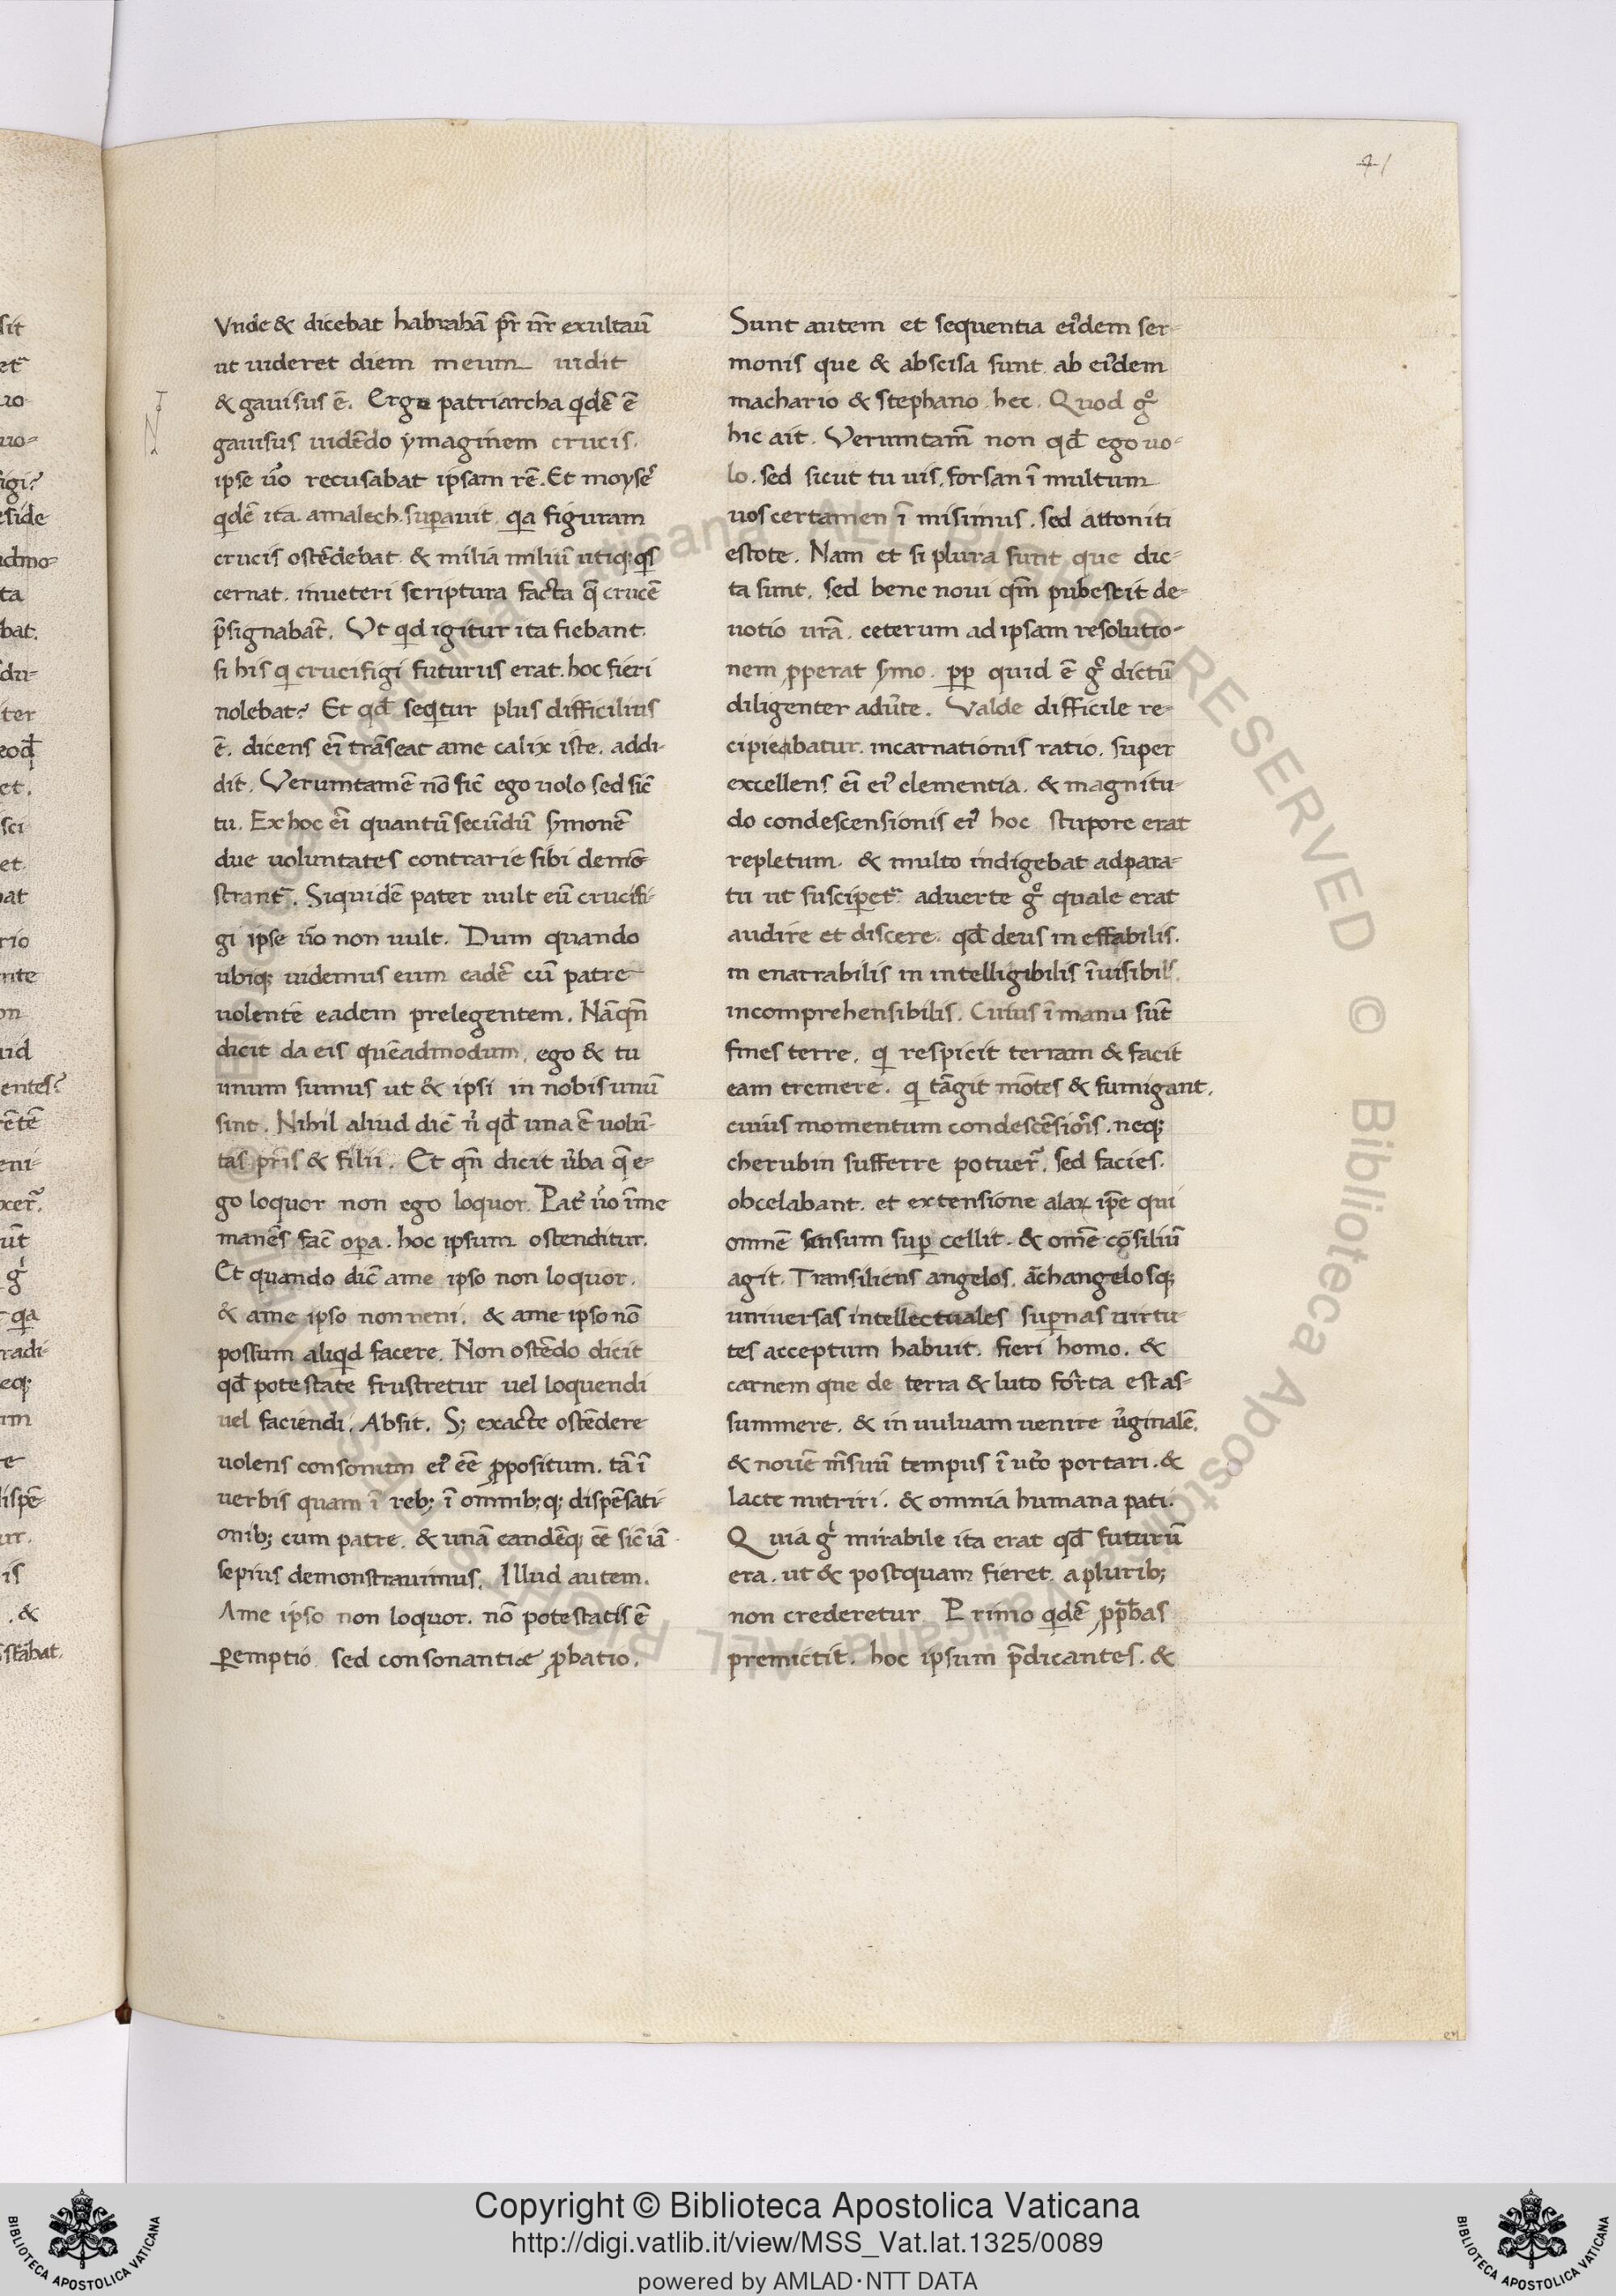 41
Vnde & dicebat habrahā pr̄ nr̄ exultaū
ut uideret diem meum uidit
& gauisus ē. Ergo patriarcha qdē ē
gauisus uidēdo ymaginem crucis.
ipse ūo recusabat ipsam rē. Et moyses
qdē ita amalech supauit qa figuram
crucis ostēdebat & milia miliū utiq; qs
cernat. inueteri scriptura facta q̄ crucē
p̄signabāt. Vt qd igitur ita fiebant.
si his q crucifigi futurus erat. hoc fieri
nolebat? Et qd̄ seqitur plus difficilius
ē. dicens eī trāseat ame calix iste. addi-
dit. Verumtamē nō sic̄ ego uolo sed sic̄
tu. Ex hoc eī quantū secūdū symonē
due uoluntates contrarie sibi demō
strant̄. Siquidē pater uult eū crucifi-
gi ipse ūo non uult. Dum quando
ubiq; uidemus eum eadē cū patre
uolentē eadem prelegentem. Nāqn̄
dicit da eis quēadmodum, ego & tu
unum sumus ut & ipsi in nobis unū
sint. Nihil aliud dic̄ n̄ qd̄ una ē uolū-
tas pr̄is & filii. Et qn̄ dicit ūba q̄ e-
go loquor non ego loquor. Pat̄ ūo īme
manēs fac̄ opa. hoc ipsum ostenditur.
Et quando dic̄ ame ipso non loquor.
& ame ipso non ueni. & ame ipso nō
possum aliqd facere. Non ostēdo dicit
qd̄ potestate frustretur uel loquendi
uel faciendi. Absit. S; exacte ostēdere
uolens consonum ei' eē ppositum. tā ī
uerbis quam ī reb; ī omnib; q; dispēsati-
onib; cum patre. & unā eandēq; eē sic̄ iā
sepius demonstrauimus. Illud autem.
Ame ipso non loquor. nō potestatis ē
peremptio sed consonantiæ pbatio.
Sunt autem et sequentia ei'dem ser-
monis que & abscisa sunt ab ei'dem
machario & stephano hec. Quod gº
hic ait. Verumtam̄ non qd̄ ego uo-
lo. sed sicut tu uis. forsan ī multum
uos certamen ī misimus. sed attoniti
estote. Nam et si plura sunt que dic-
ta sunt. sed bene noui qm̄ pubescit de-
uotio ur̄a. ceterum ad ipsam resolutio-
nem pperat symo. pp quid ē gº dictū
diligenter adūte. Valde difficile re-
cipiebatur. incarnationis ratio. super
excellens eī ei' clementia. & magnitu-
do condescensionis ei' hoc stupore erat
repletum. & multo indigebat adpara-
tu ut suscipet̄. aduerte gº quale erat
audire et discere. qd̄ deus in effabilis.
in enarrabilis in intelligibilis īuisibil'
incomprehensibilis. Cuius ī manu sūt
fines terre. q respicit terram & facit
eam tremere. q tāgit mōtes & fumigant.
cuius momentum condescēsiōis. neq;
cherubin sufferre potuer̄. sed facies.
obcelabant. et extensione alaꝝ ip̄e qui
omnē sensum sup cellit. & om̄e cōsiliū
agit. Transiliens angelos. āchangelosq;
uniuersas intellectuales supnas uirtu-
tes acceptum habuit. fieri homo. &
carnem que de terra & luto for̄ta est as-
summere. & in uuluam uenire ūginalē.
& nouē m̄suū tempus ī uto portari. &
lacte nutriri. & omnia humana pati.
Quia g' mirabile ita erat qd̄ futurū
era. ut & postquam fieret. a plurib;
non crederetur Primo qdē pphas
premictit. hoc ipsum p̄dicantes. &
Copyright © Biblioteca Apostolica Vaticana
http://digi.vatlib.it/view/MSS_Vat.lat.1325/0089
powered by AMLAD·NTT DATA
BIBLIOTECA APOSTOLICA VATICANA
BIBLIOTECA APOSTOLICA VATICANA